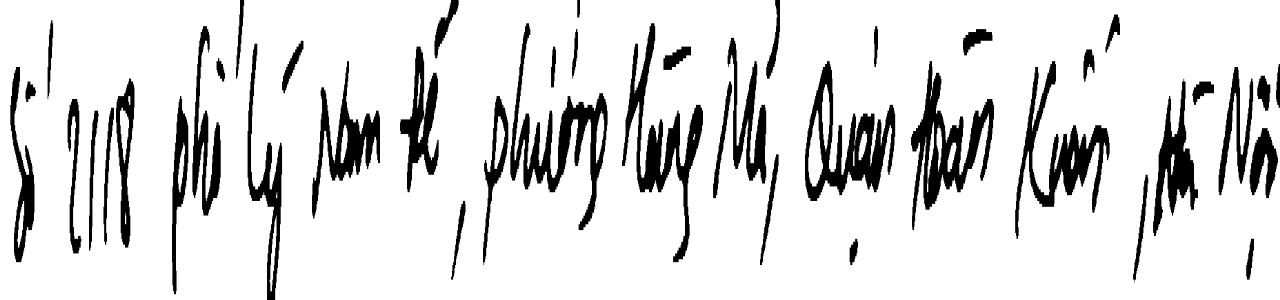 Số 2118 phố Lý Nam Đế, phường Hàng Mã, Quận Hoàn Kiếm, Hà Nội